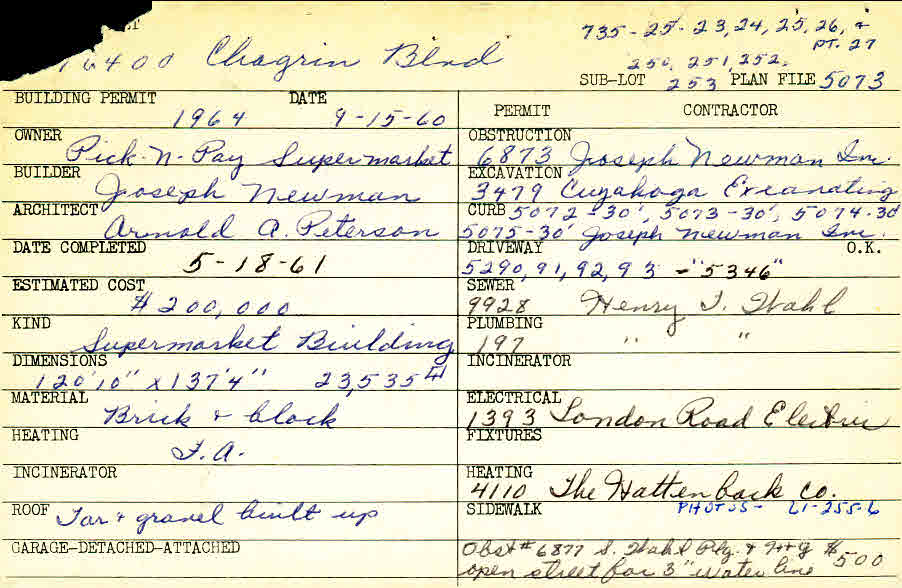 16400 Chagrin Blvd
735-25-23,24,25,26,+
PT. 27
250, 251, 252,
SUB-LOT 253 PLAN FILE 5073
BUILDING PERMIT DATE
1964 9-15-60
OWNER
Pick-N-Pay Supermarket
BUILDER
Joseph Newman
ARCHITECT
Arnold A. Peterson
DATE COMPLETED
5-18-61
ESTIMATED COST
$200,000
KIND
Supermarket Building
DIMENSIONS
120'10" x 137'4" 23,535
MATERIAL
Brick + block
HEATING
F.A.
INCINERATOR
ROOF Tar + gravel built up
GARAGE-DETACHED-ATTACHED
PERMIT CONTRACTOR
OBSTRUCTION
6873 Joseph Newman Inc.
EXCAVATION
3479 Cuyahoga Excavating
CURB 5072-30', 5073-30', 5074-30
5075-30' Joseph Newman Inc.
DRIVEWAY O.K.
5290,91,92,93 - "5346"
SEWER
9928 Henry F. Wahl
PLUMBING
197 " "
INCINERATOR
ELECTRICAL
1393 London Road Electric
FIXTURES
HEATING
4110 The Hattenback Co.
SIDEWALK PHOTOS- 61-255-6
Obst # 6877 Wahl Plg. + Htg $500
open street for 3" water line